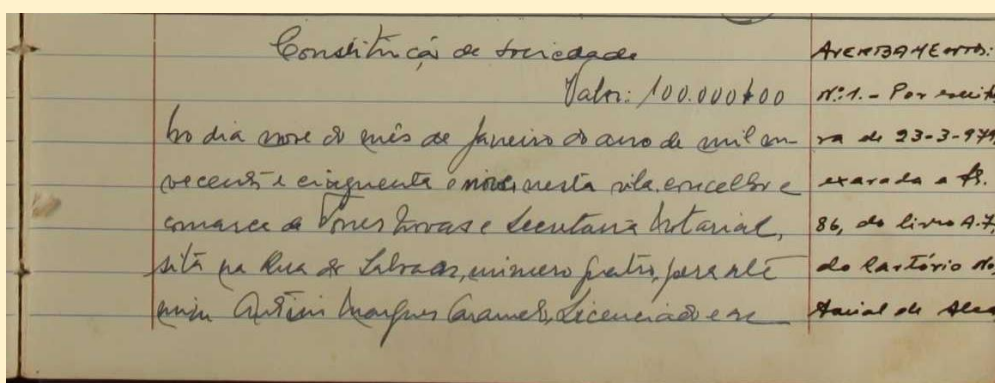 Constituição de sociedade
Valor: 100.000$00
No dia nove do mês de Janeiro do ano de mil no-
vecentos e cinquenta e nove, nesta vila, concelho e
comarca de Torres Novas e Secretaria Notarial,
sita na Rua do Salvador, número quatro, perante
mim António Marques Caramelo, Licenciado e se
AVERBAMENTOS:
Nº.1. - Por escritu
ra de 23-3-979,
exarada a fs.
86, do livro A.7,
do Cartório No
tarial de Alca